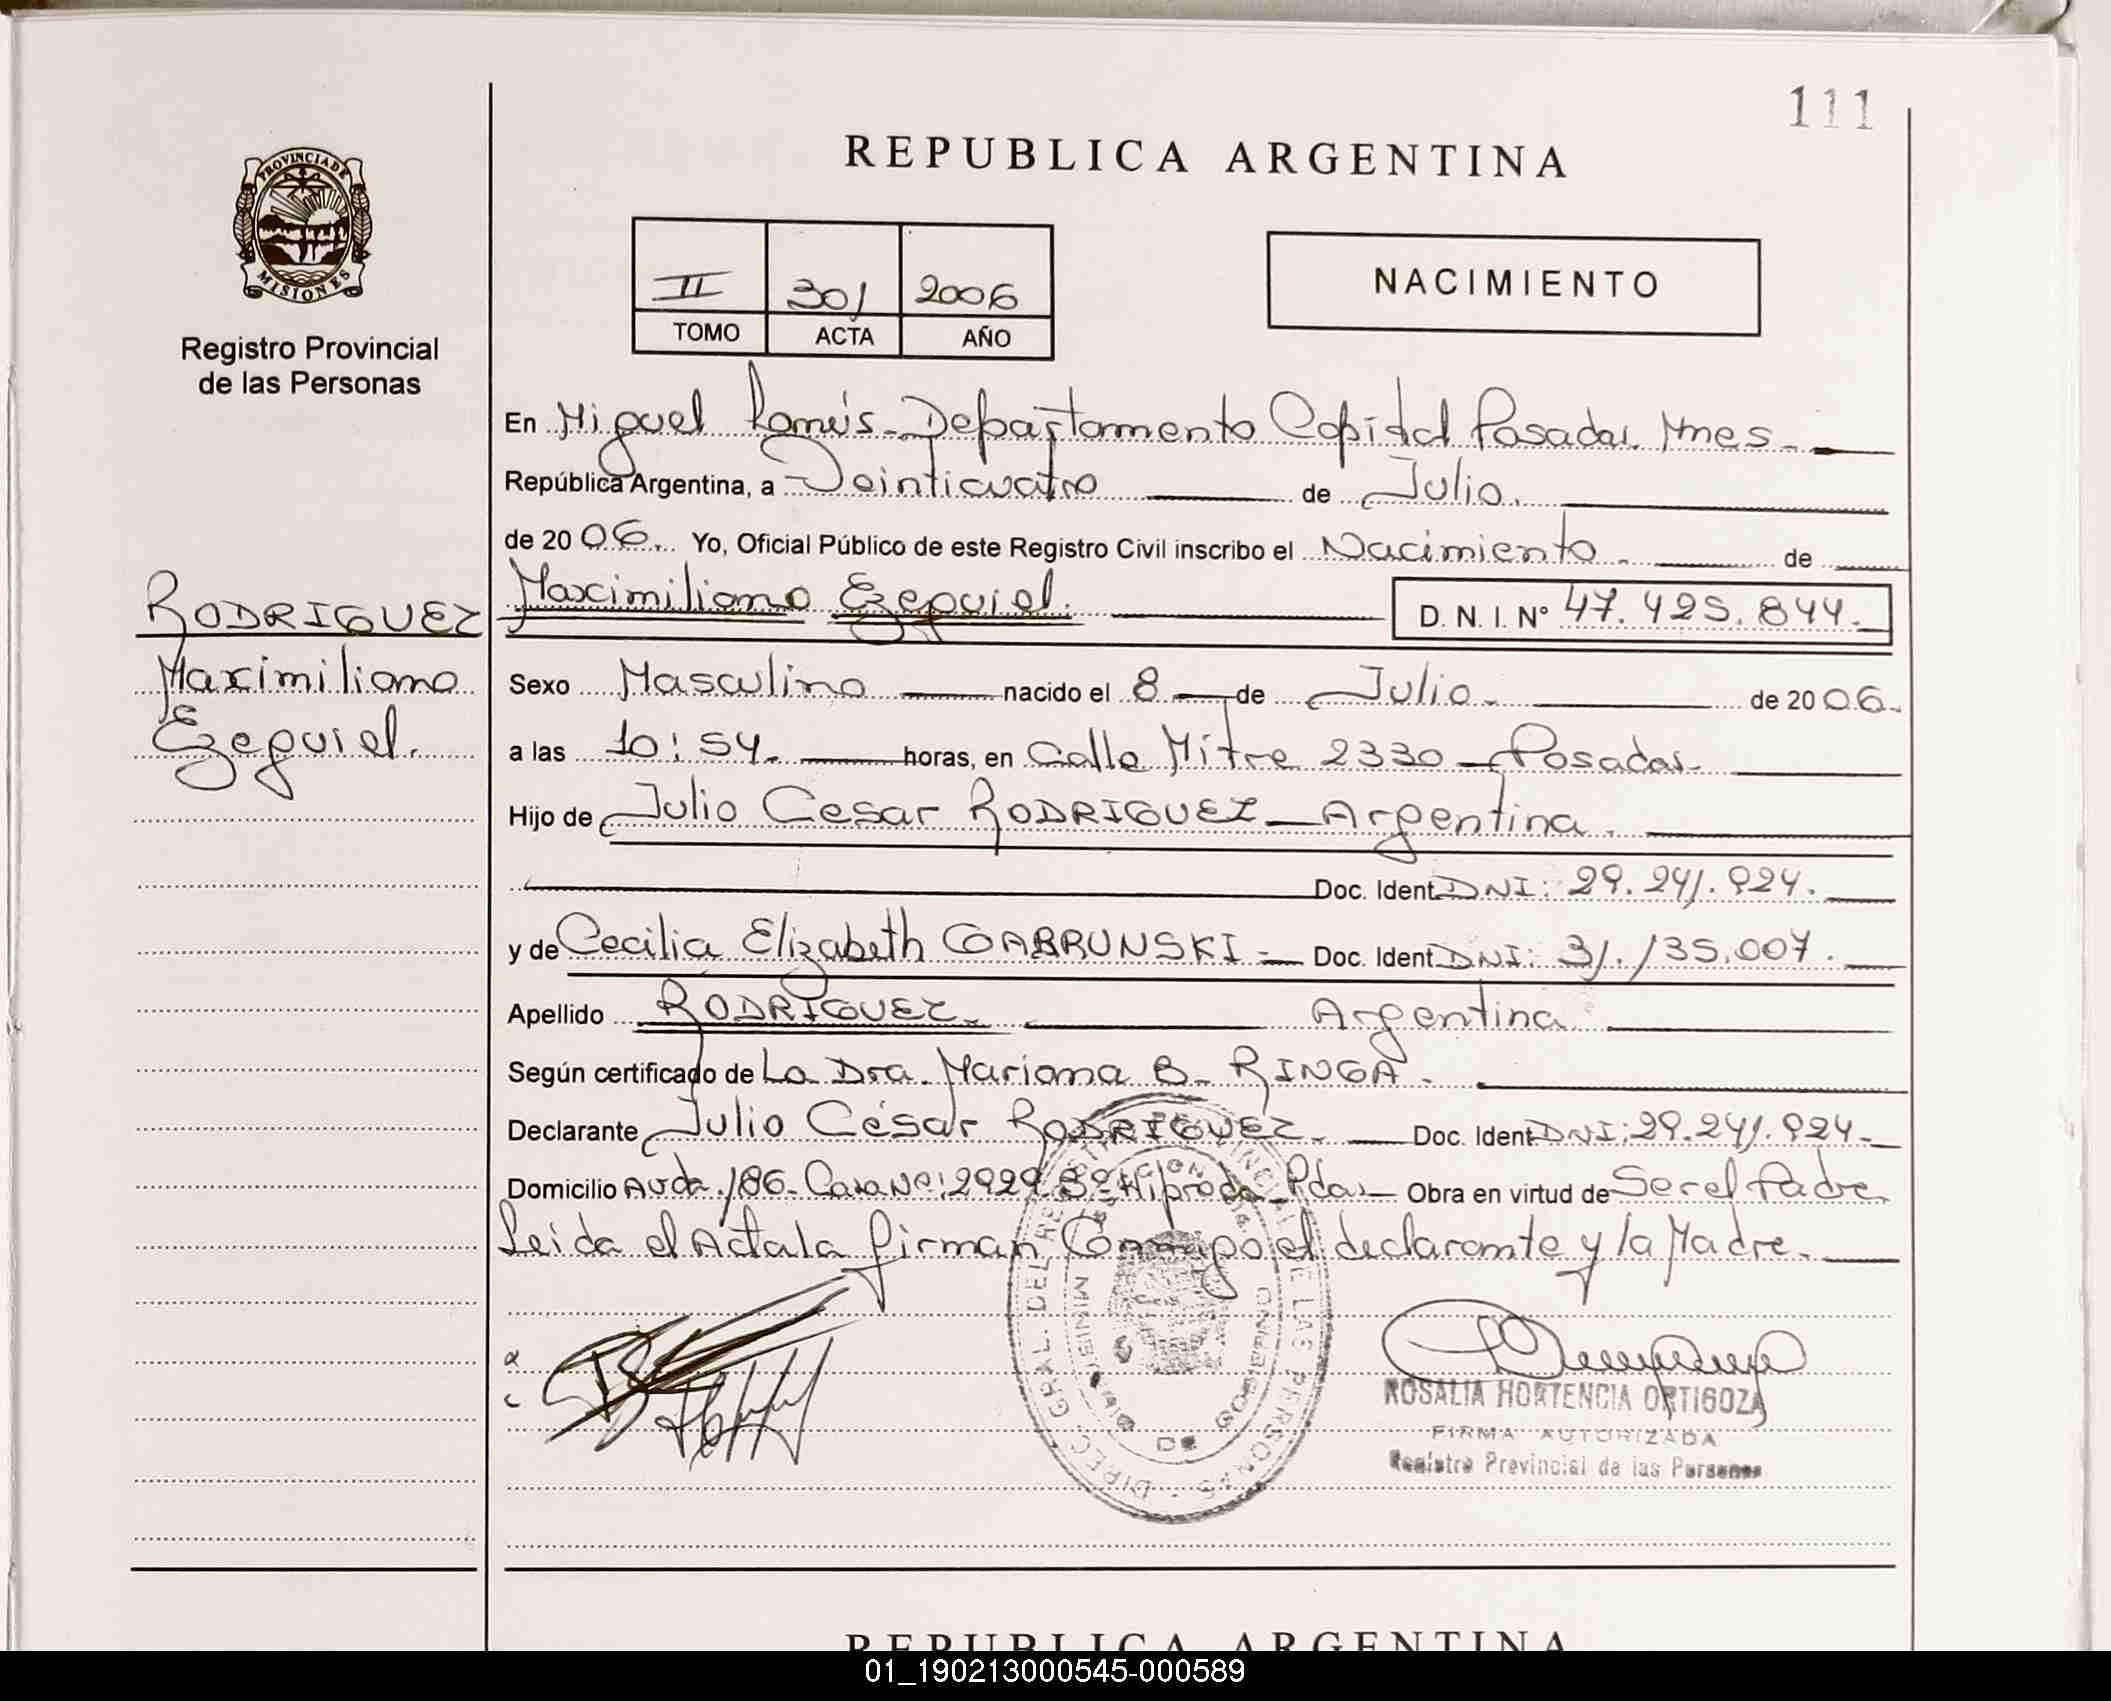 111
REPUBLICA ARGENTINA
PROVINCIA DE
MISIONES
Registro Provincial
de las Personas
II 301 2006
TOMO ACTA AÑO
NACIMIENTO
En Miguel Lanús - Departamento Capital Posadas Mnes -
República Argentina, a Veinticuatro de Julio.
de 2006. Yo, Oficial Público de este Registro Civil inscribo el Nacimiento - de
RODRIGUEZ
Maximiliano
Ezequiel.
Maximiliano Ezequiel. D. N. I. Nº 47.425.844.-
Sexo Masculino nacido el 8 de Julio - de 2006.
a las 10:54. horas, en Calle Mitre 2330 - Posadas -
Hijo de Julio Cesar RODRIGUEZ - Argentina.
Doc. Ident. DNI: 29.241.924.
y de Cecilia Elizabeth GABRUNSKI - Doc. Ident DNI: 31.135.007.
Apellido RODRIGUEZ. Argentina
Según certificado de La Dra. Mariana B. RINGA.
Declarante Julio César RODRIGUEZ. Doc. Ident DNI: 29.241.924.
Domicilio Avda. 186 - Casa Nº: 2929 Bº Hiprodа - Pdas - Obra en virtud de Ser el Padre
Leida el Acta la firman Conmigo el declarante y la Madre.
DIREC. GRAL. DEL REGISTRO PROVINCIAL DE LAS PERSONAS
ROSALIA HORTENCIA ORTIGOZA
FIRMA AUTORIZADA
Registro Provincial de las Personas
REPUBLICA ARGENTINA
01_190213000545-000589